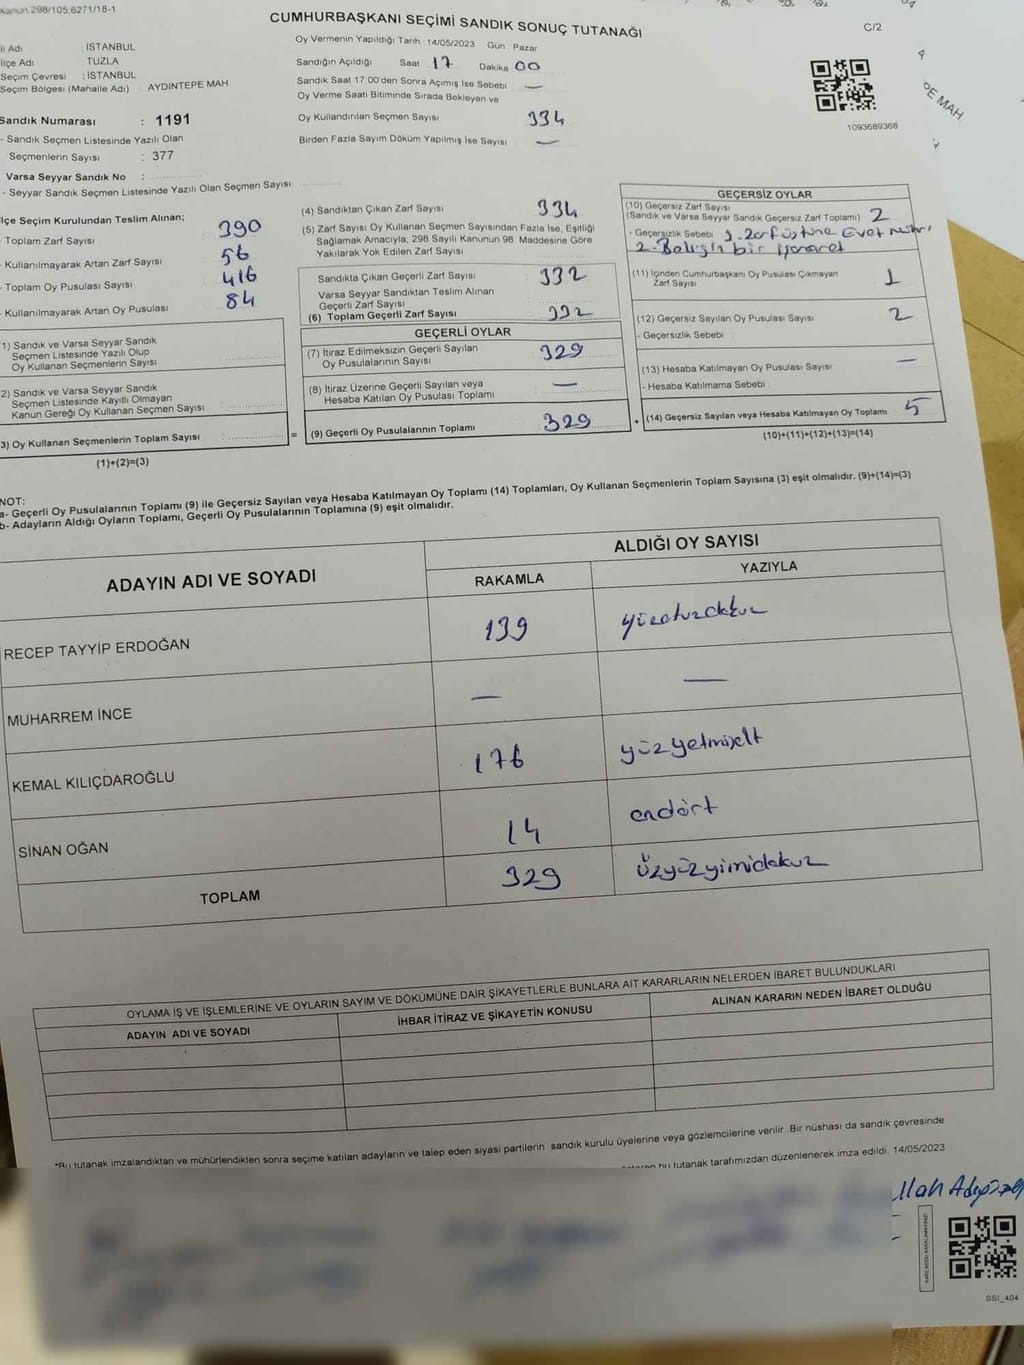 Kanun 298/105,6271/18-1
CUMHURBAŞKANI SEÇİMİ SANDIK SONUÇ TUTANAĞI
C/2
İl Adı : İSTANBUL
İlçe Adı : TUZLA
Seçim Çevresi : İSTANBUL
Seçim Bölgesi (Mahalle Adı) : AYDINTEPE MAH
Sandık Numarası : 1191
- Sandık Seçmen Listesinde Yazılı Olan
Seçmenlerin Sayısı : 377
Varsa Seyyar Sandık No :
- Seyyar Sandık Seçmen Listesinde Yazılı Olan Seçmen Sayısı
Oy Vermenin Yapıldığı Tarih : 14/05/2023 Gün : Pazar
Sandığın Açıldığı Saat 17 Dakika 00
Sandık Saat 17:00'den Sonra Açımış İse Sebebi —
Oy Verme Saati Bitiminde Sırada Bekleyen ve
Oy Kullandırılan Seçmen Sayısı 334
Birden Fazla Sayım Döküm Yapılmış İse Sayısı —
1093689366
PE MAH
İlçe Seçim Kurulundan Teslim Alınan;
- Toplam Zarf Sayısı 390
- Kullanılmayarak Artan Zarf Sayısı 56
- Toplam Oy Pusulası Sayısı 416
- Kullanılmayarak Artan Oy Pusulası 84
(1) Sandık ve Varsa Seyyar Sandık
Seçmen Listesinde Yazılı Olup
Oy Kullanan Seçmenlerin Sayısı
(2) Sandık ve Varsa Seyyar Sandık
Seçmen Listesinde Kayıtlı Olmayan
Kanun Gereği Oy Kullanan Seçmen Sayısı
(3) Oy Kullanan Seçmenlerin Toplam Sayısı
(1)+(2)=(3)
(4) Sandıktan Çıkan Zarf Sayısı 334
(5) Zarf Sayısı Oy Kullanan Seçmen Sayısından Fazla İse, Eşitliği
Sağlamak Amacıyla; 298 Sayılı Kanunun 98. Maddesine Göre
Yakılarak Yok Edilen Zarf Sayısı
Sandıkta Çıkan Geçerli Zarf Sayısı 332
Varsa Seyyar Sandıktan Teslim Alınan
Geçerli Zarf Sayısı
(6) Toplam Geçerli Zarf Sayısı 332
GEÇERLİ OYLAR
(7) İtiraz Edilmeksizin Geçerli Sayılan
Oy Pusulalarının Sayısı 329
(8) İtiraz Üzerine Geçerli Sayılan veya
Hesaba Katılan Oy Pusulası Toplamı —
= (9) Geçerli Oy Pusulalarının Toplamı 329
GEÇERSİZ OYLAR
(10) Geçersiz Zarf Sayısı
(Sandık ve Varsa Seyyar Sandık Geçersiz Zarf Toplamı) 2
- Geçersizlik Sebebi 1- Zarf üstüne Evet mührü
2- Belirgin bir işaret
(11) İçinden Cumhurbaşkanı Oy Pusulası Çıkmayan
Zarf Sayısı 1
(12) Geçersiz Sayılan Oy Pusulası Sayısı 2
- Geçersizlik Sebebi :
(13) Hesaba Katılmayan Oy Pusulası Sayısı —
- Hesaba Katılmama Sebebi :
+ (14) Geçersiz Sayılan veya Hesaba Katılmayan Oy Toplamı 5
(10)+(11)+(12)+(13)=(14)
NOT:
a- Geçerli Oy Pusulalarının Toplamı (9) ile Geçersiz Sayılan veya Hesaba Katılmayan Oy Toplamı (14) Toplamları, Oy Kullanan Seçmenlerin Toplam Sayısına (3) eşit olmalıdır. (9)+(14)=(3)
b- Adayların Aldığı Oyların Toplamı, Geçerli Oy Pusulalarının Toplamına (9) eşit olmalıdır.
ADAYIN ADI VE SOYADI
ALDIĞI OY SAYISI
RAKAMLA YAZIYLA
RECEP TAYYİP ERDOĞAN 139 yüzotuzdokuz
MUHARREM İNCE — —
KEMAL KILIÇDAROĞLU 176 yüzyetmişalt
SİNAN OĞAN 14 ondört
TOPLAM 329 üzyüzyimidokuz
OYLAMA İŞ VE İŞLEMLERİNE VE OYLARIN SAYIM VE DÖKÜMÜNE DAİR ŞİKAYETLERLE BUNLARA AİT KARARLARIN NELERDEN İBARET BULUNDUKLARI
ADAYIN ADI VE SOYADI İHBAR İTİRAZ VE ŞİKAYETİN KONUSU ALINAN KARARIN NEDEN İBARET OLDUĞU
*Bu tutanak imzalandıktan ve mühürlendikten sonra seçime katılan adayların ve talep eden siyasi partilerin sandık kurulu üyelerine veya gözlemcilerine verilir. Bir nüshası da sandık çevresinde
bu tutanak tarafımızdan düzenlenerek imza edildi. 14/05/2023
SSI_404